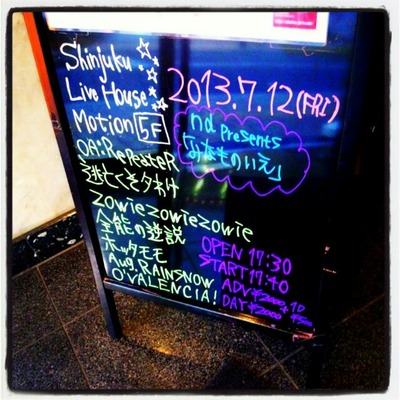 Shinjuku
Live House
Motion 5F
2013.7.12(FRI)
nd presents
「みなものいえ」
OA:RePeateR
逃亡くそタわけ
zowiezowiezowie
全能の逆説
ホッタモモ
Aug.RAINSNOW
O'VALENCIA!
OPEN 17:30
START 17:40
ADV ¥2000+1D
DAY ¥2000